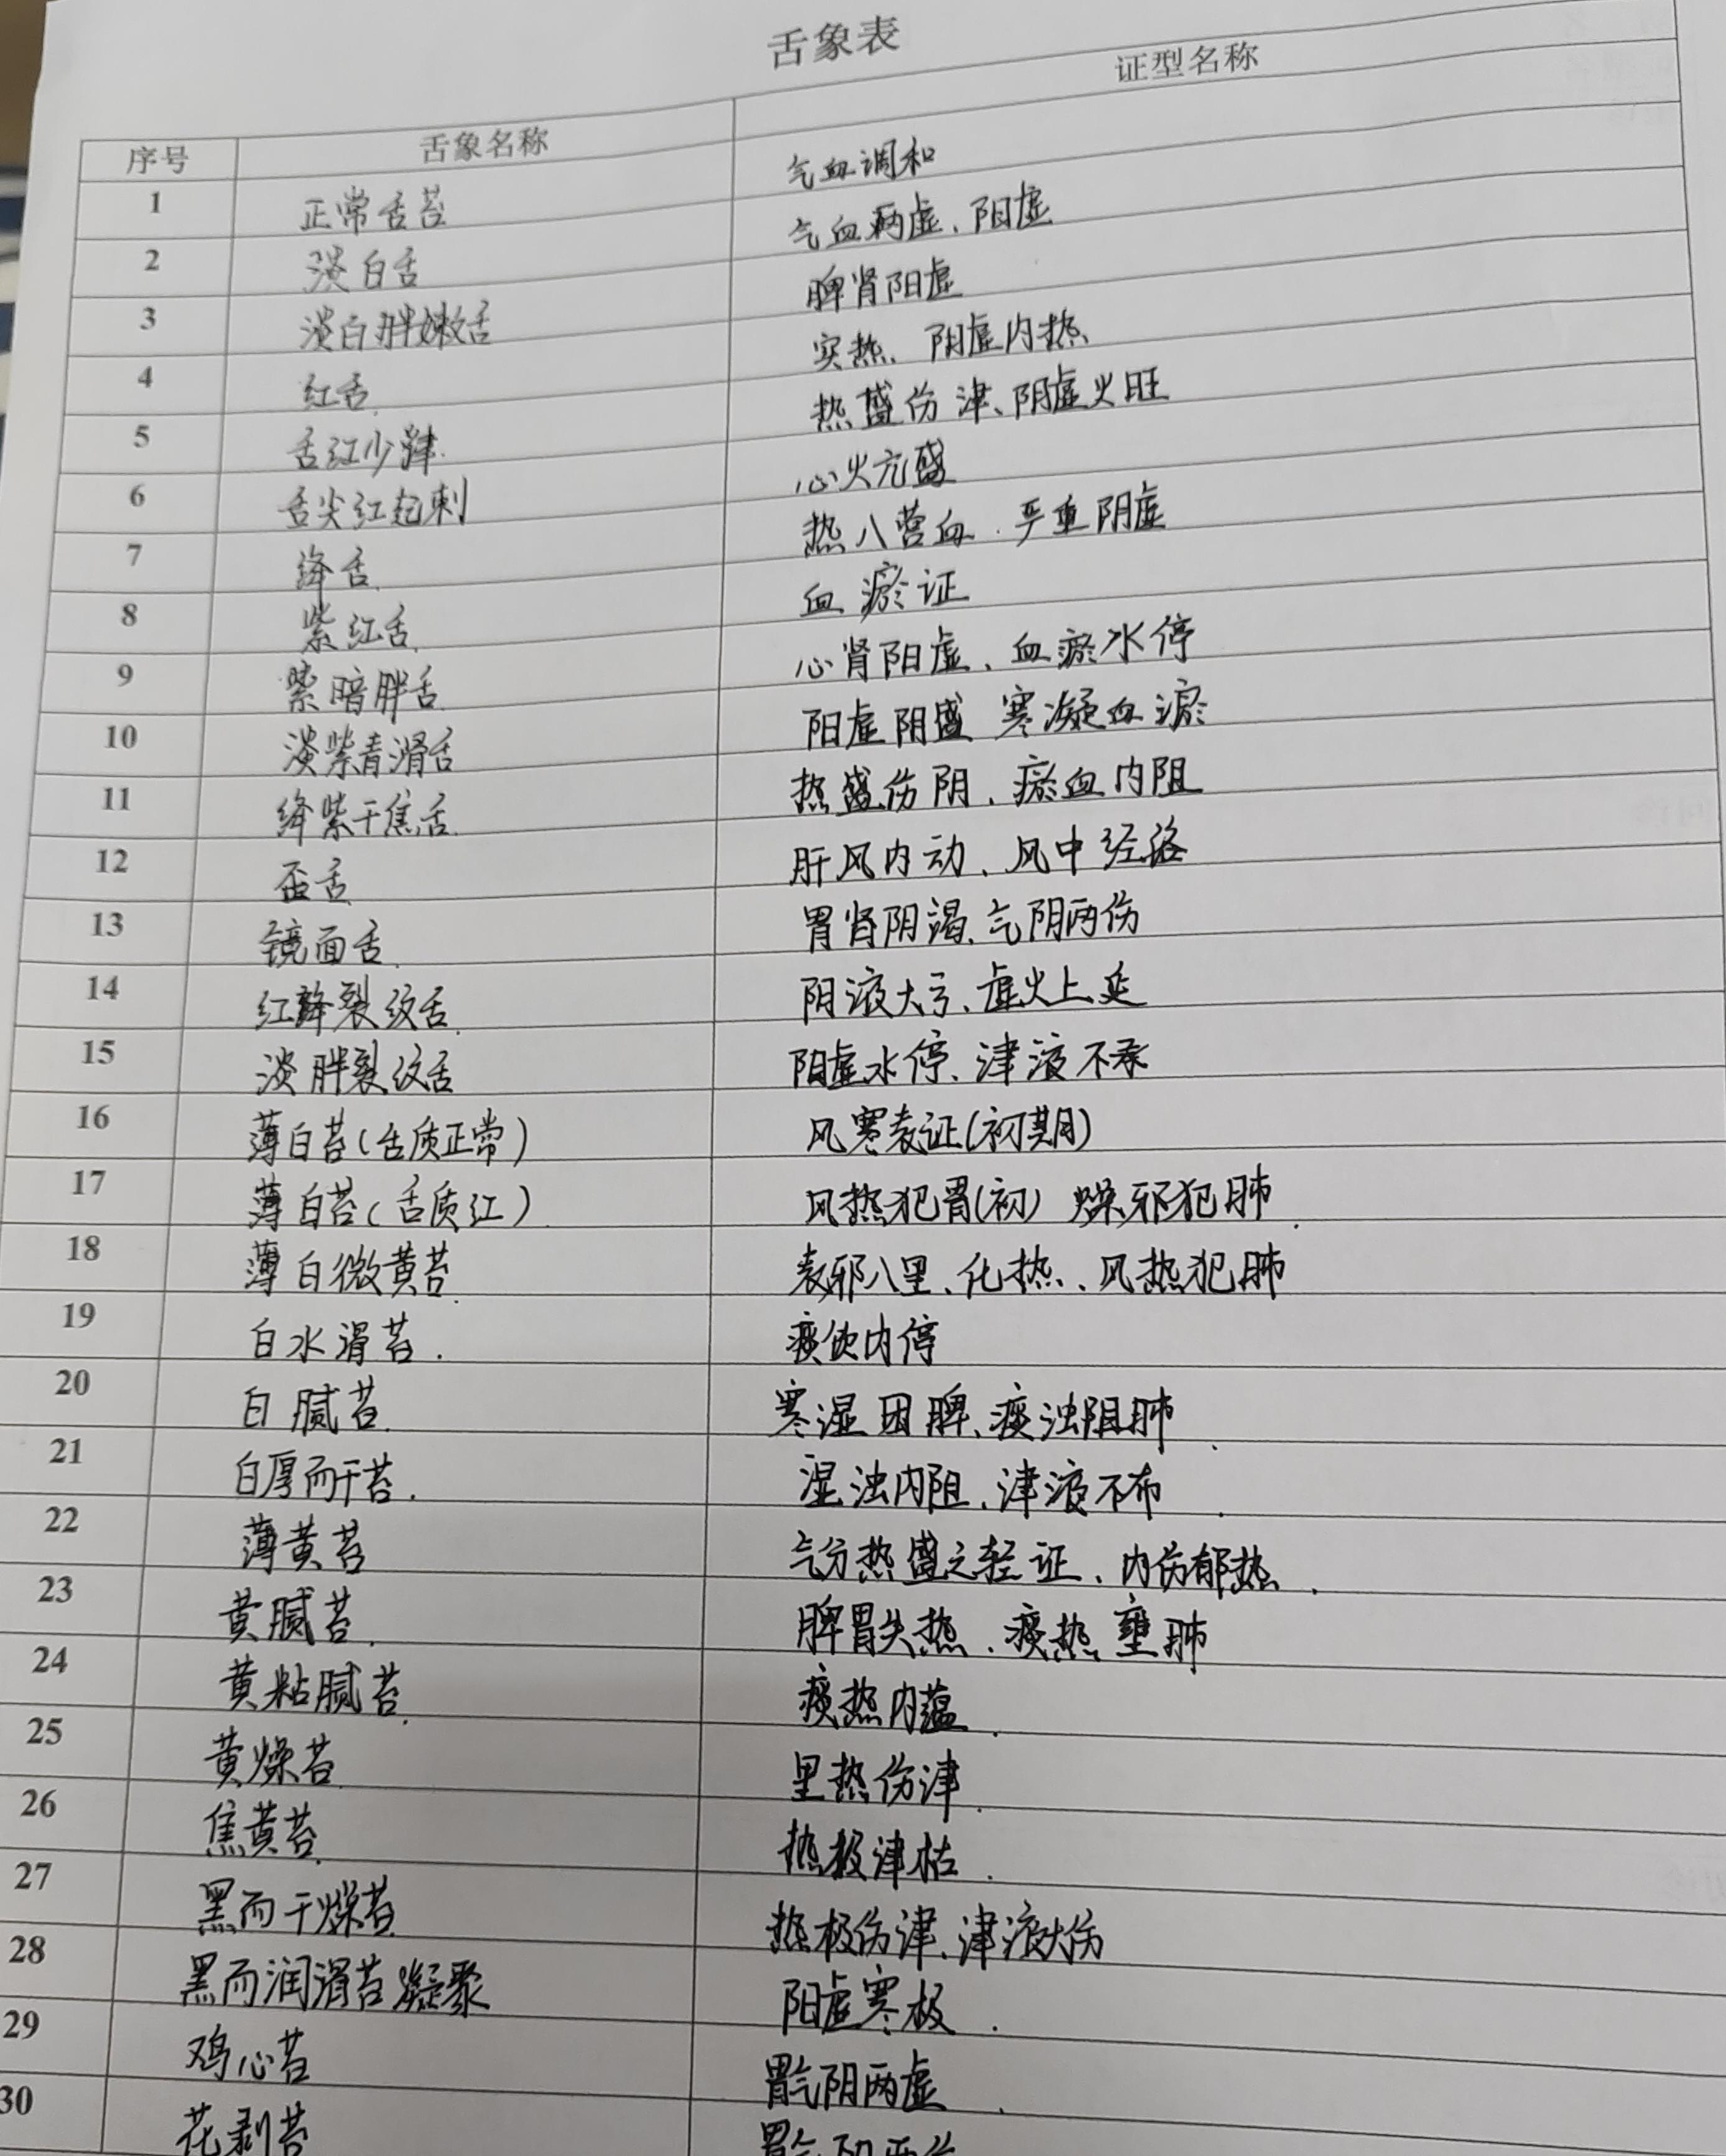 舌象表
序号 舌象名称 证型名称
1 正常舌苔 气血调和
2 淡白舌 气血两虚、阳虚
3 淡白胖嫩舌 脾肾阳虚
4 红舌 实热、阴虚内热
5 舌红少津 热盛伤津、阴虚火旺
6 舌尖红起刺 心火亢盛
7 绛舌 热入营血、严重阴虚
8 紫红舌 血瘀证
9 紫暗胖舌 心肾阳虚、血瘀水停
10 淡紫青滑舌 阳虚阴盛 寒凝血瘀
11 绛紫干焦舌 热盛伤阴、瘀血内阻
12 歪舌 肝风内动、风中经络
13 镜面舌 胃肾阴渴、气阴两伤
14 红绛裂纹舌 阴液大亏、虚火上延
15 淡胖裂纹舌 阳虚水停、津液不承
16 薄白苔(舌质正常) 风寒表证(初期)
17 薄白苔(舌质红) 风热犯胃(初) 燥邪犯肺
18 薄白微黄苔 表邪入里、化热、风热犯肺
19 白水滑苔. 痰饮内停
20 白腻苔. 寒湿困脾、痰浊阻肺.
21 白厚而干苔. 湿浊内阻、津液不布.
22 薄黄苔 气分热盛之轻证、内伤郁热.
23 黄腻苔. 脾胃失热、痰热壅肺
24 黄粘腻苔. 痰热内蕴.
25 黄燥苔 里热伤津.
26 焦黄苔. 热极津枯.
27 黑而干燥苔 热极伤津、津液大伤
28 黑而润滑苔凝聚 阳虚寒极.
29 鸡心苔 胃气阴两虚.
30 花剥苔 胃气阴两伤